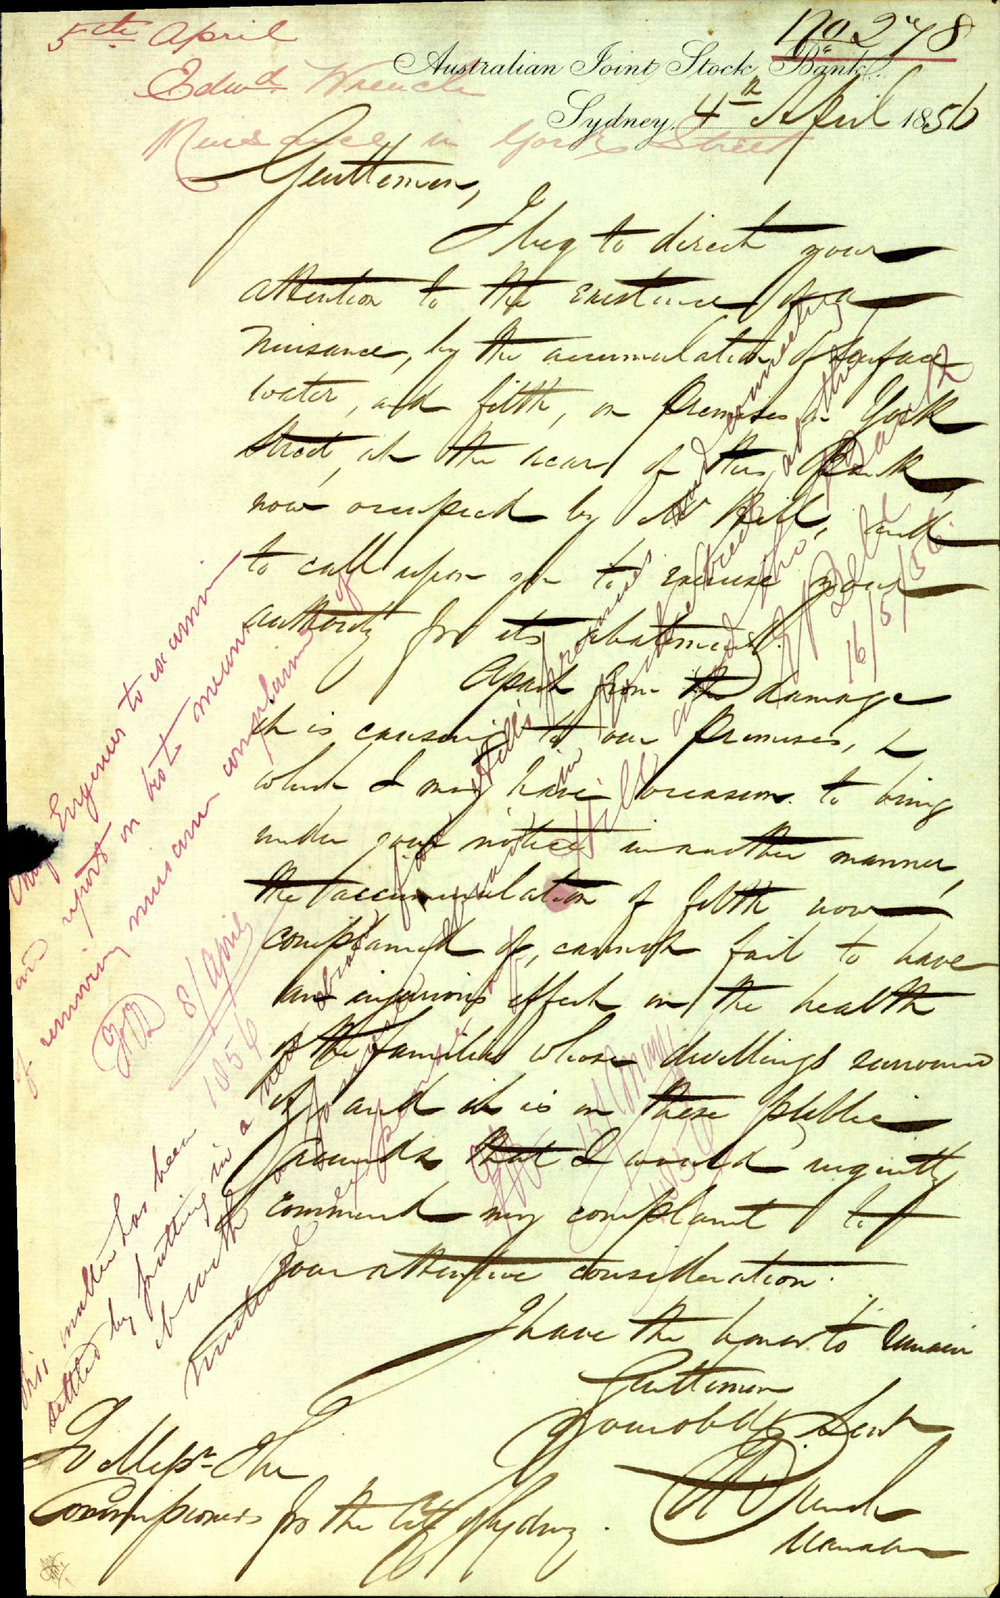 No 278
5th April
Edwd. Wrench
Nuisance in York Street
Australian Joint Stock Bank.
Sydney, 4th April 1856
Gentlemen,
I beg to direct your
attention to the existence of a
Nuisance, by the accumulation of surface
water, and filth, on Premises in York
Street, at the rear of this Bank,
now occupied by Mr Hill, and
to call upon you to exercise your
authority for its abatement.
Apart from the damage
it is causing to our Premises, &
which I may have occasion to bring
under your notice in another manner,
the accumulation of filth now
complained of, cannot fail to have
an injurious effect on the health
of the families whose dwellings surround
it, and it is on these public
grounds that I would urgently
commend my complaint to
your attentive consideration.
I have the honor to remain
Gentlemen
Your obdt Servt
Wrench
Manager
To Messrs The
Commissioners for the City of Sydney.
City Engineer to examine
and report on best means
of removing nuisance complained of
8/April
1856
This matter has been
settled by putting in a
drain from Hill's premises and connecting
it with
in the
Hill
13 May
1856
16/5/56